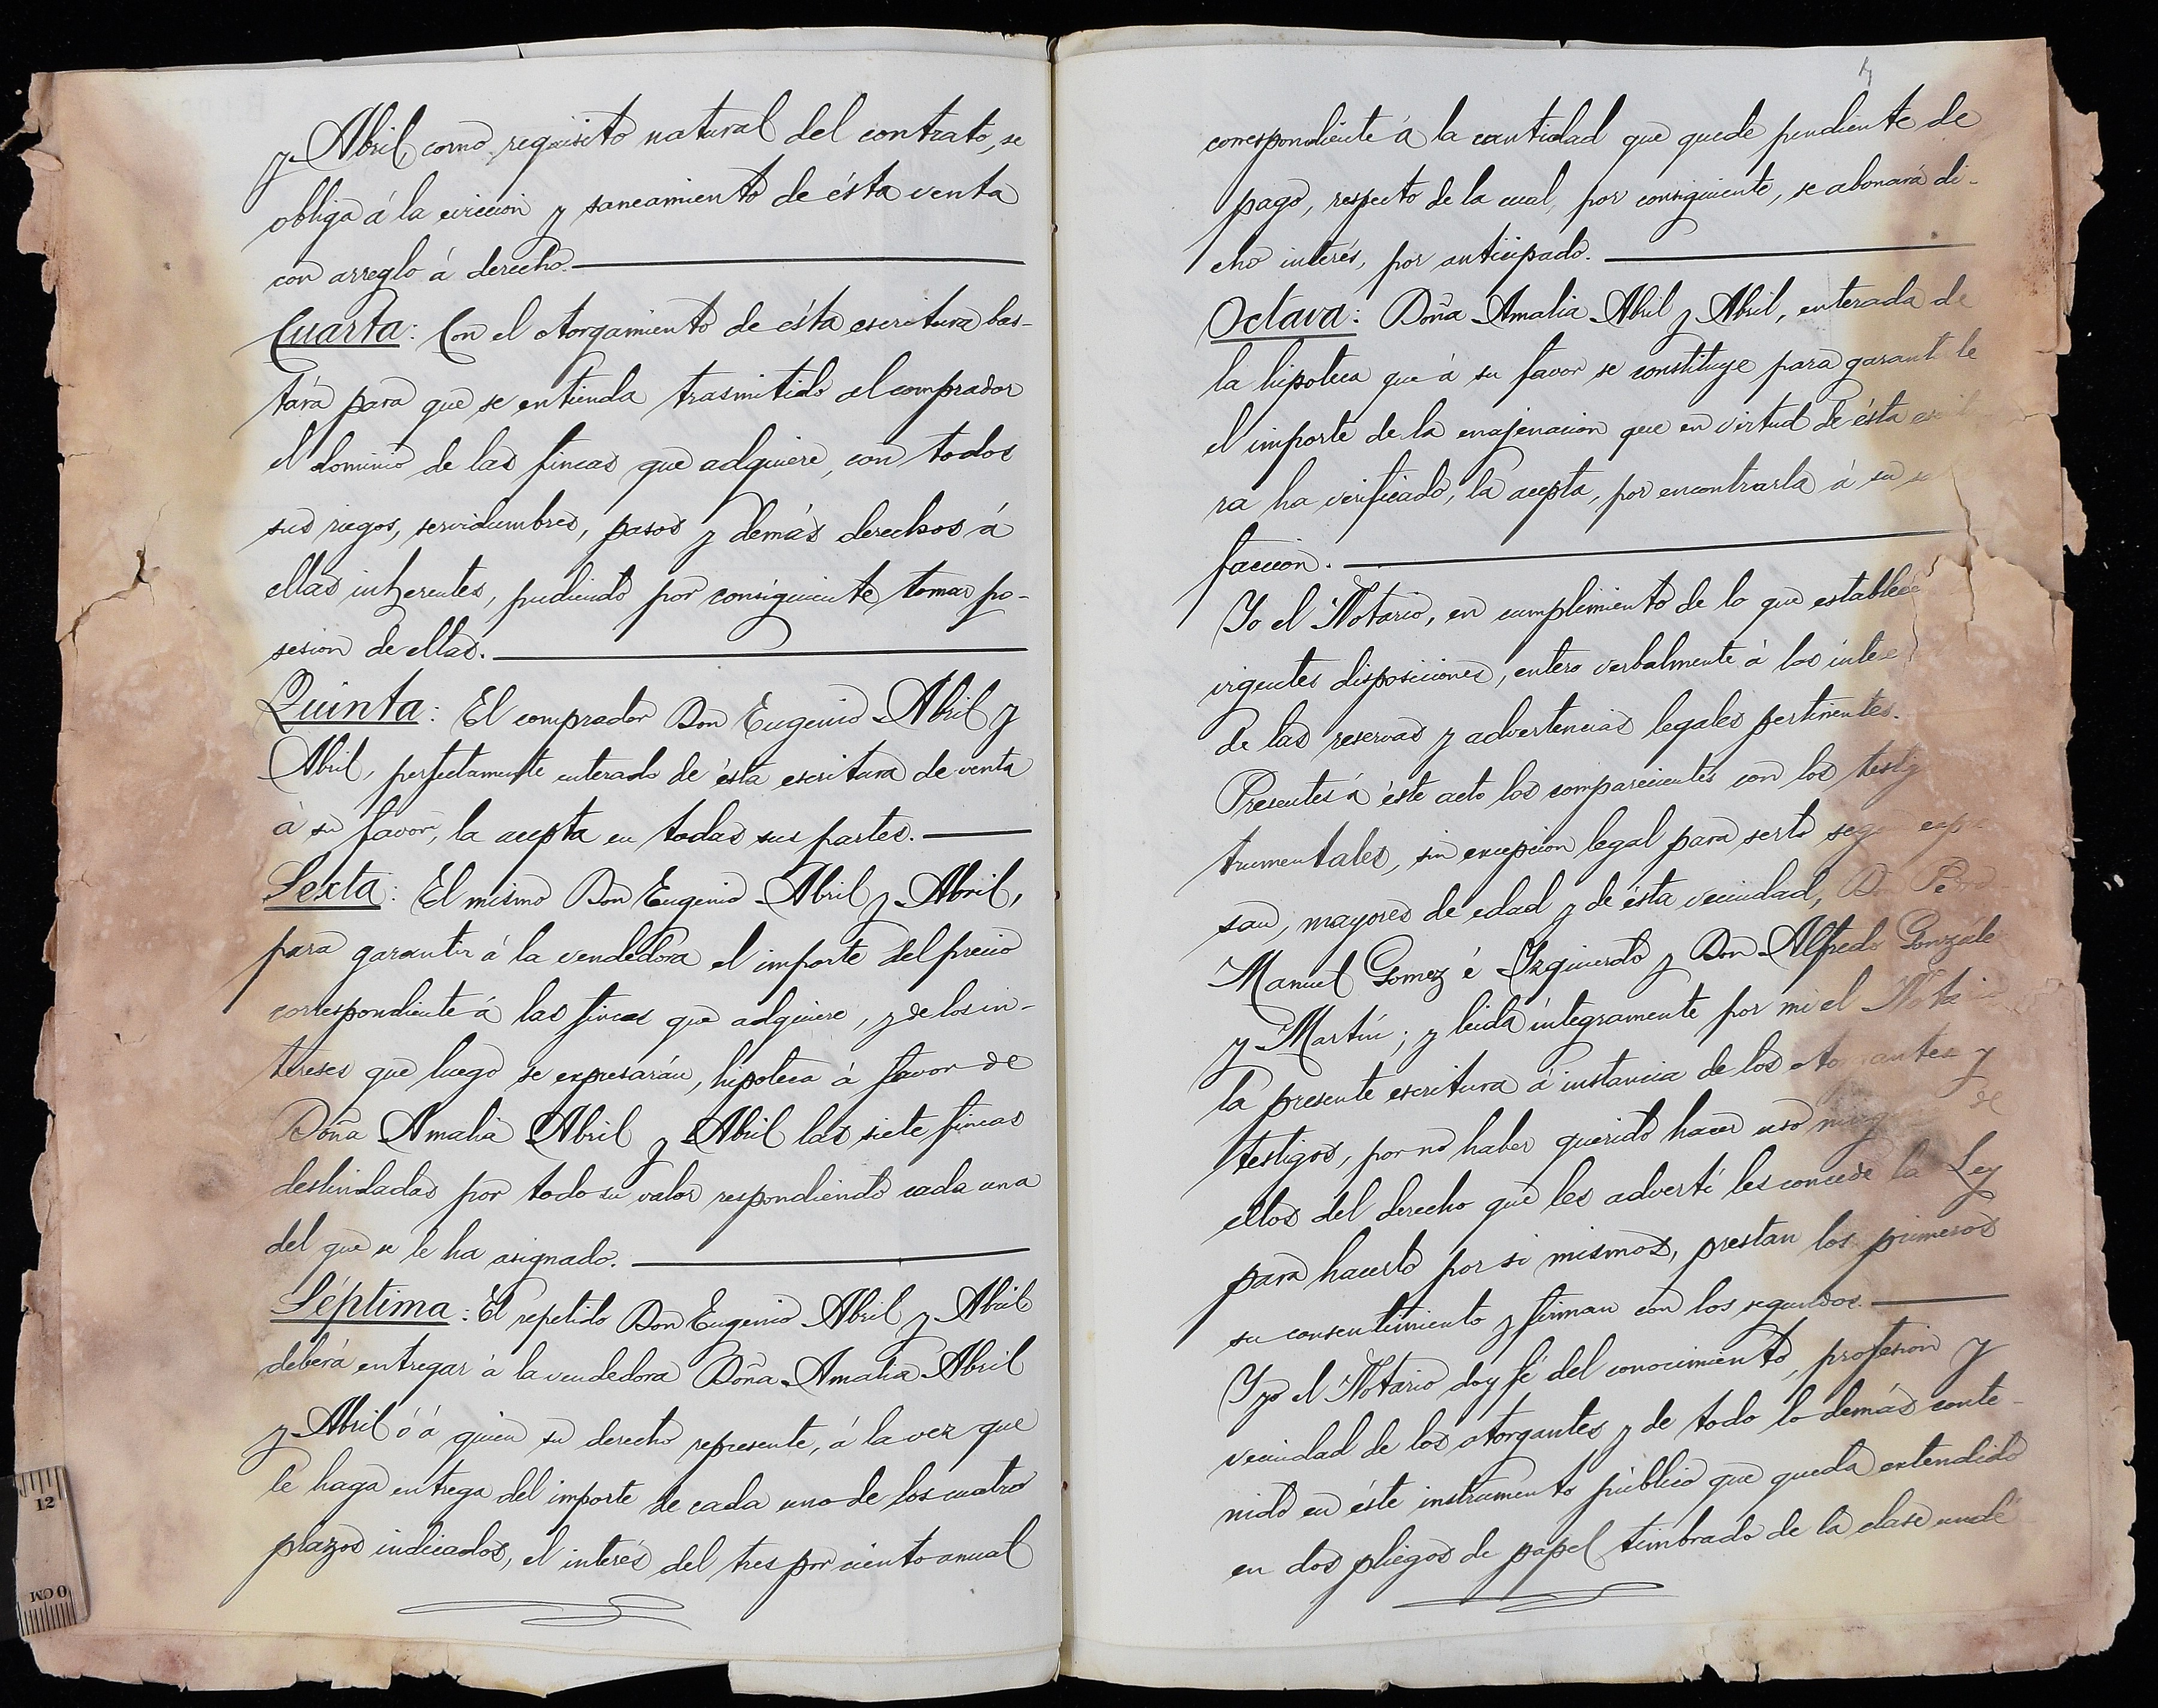 y Abril, como requisito natural del contrato, se
obliga á la eviccion y saneamiento de ésta venta
con arreglo á derecho.
Cuarta: Con el otorgamiento de ésta escritura bas-
tará para que se entienda trasmitido al comprador
el dominio de las fincas que adquiere, con todos
sus riegos, servidumbres, pasos y demás derechos á
ellas inherentes, pudiendo por consiguiente tomar po-
sesion de ellas.
Quinta: El comprador Don Eugenio Abril y
Abril, perfectamente enterado de ésta escritura de venta
á su favor, la acepta en todas sus partes.
Sexta: El mismo Don Eugenio Abril y Abril,
para garantir á la vendedora el importe del precio
correspondiente á las fincas que adquiere, y de los in-
tereses que luego se expresarán, hipoteca á favor de
Doña Amalia Abril y Abril las siete fincas
deslindadas por todo su valor respondiendo cada una
del que se le ha asignado.
Séptima: El repetido Don Eugenio Abril y Abril
deberá entregar á la vendedora Doña Amalia Abril
y Abril ó á quien su derecho represente, á la vez que
le haga entrega del importe de cada uno de los cuatro
plazos indicados, el interés del tres por ciento anual
12
0 CM
correspondiente á la cantidad que quede pendiente de
pago, respecto de la cual, por consiguiente, se abonará di-
cho interés, por anticipado.
Octava: Doña Amalia Abril y Abril, enterada de
la hipoteca que á su favor se constituye para garant le
el importe de la enajenacion que en virtud de ésta
ra ha verificado, la acepta, por encontrarla á su
faccion.
Yo el Notario, en cumplimiento de lo que establec
vigentes disposiciones, entero verbalmente á los intere
de las reservas y advertencias legales pertinentes.
Presentes á éste acto los comparecientes con los testig
trumentales, sin excepcion legal para serlo seg expre
san, mayores de edad y de ésta vecindad, Don Pedro
Manuel Gomez é Izquierdo y Don Alfredo Gonzále
y Martín; y leida íntegramente por mi el Notario
la presente escritura á instancia de los oto antes y
testigos, por no haber querido hacer uso ning de
ellos del derecho que les advertí les concede la Ley
para hacerlo por si mismos, prestan los primeros
su consentimiento y firman con los segundos.
Y yo el Notario doy fé del conocimiento, profesion y
vecindad de los otorgantes y de todo lo demás conte-
nido en éste instrumento público que queda extendido
en dos pliegos de papel timbrado de la clase undé